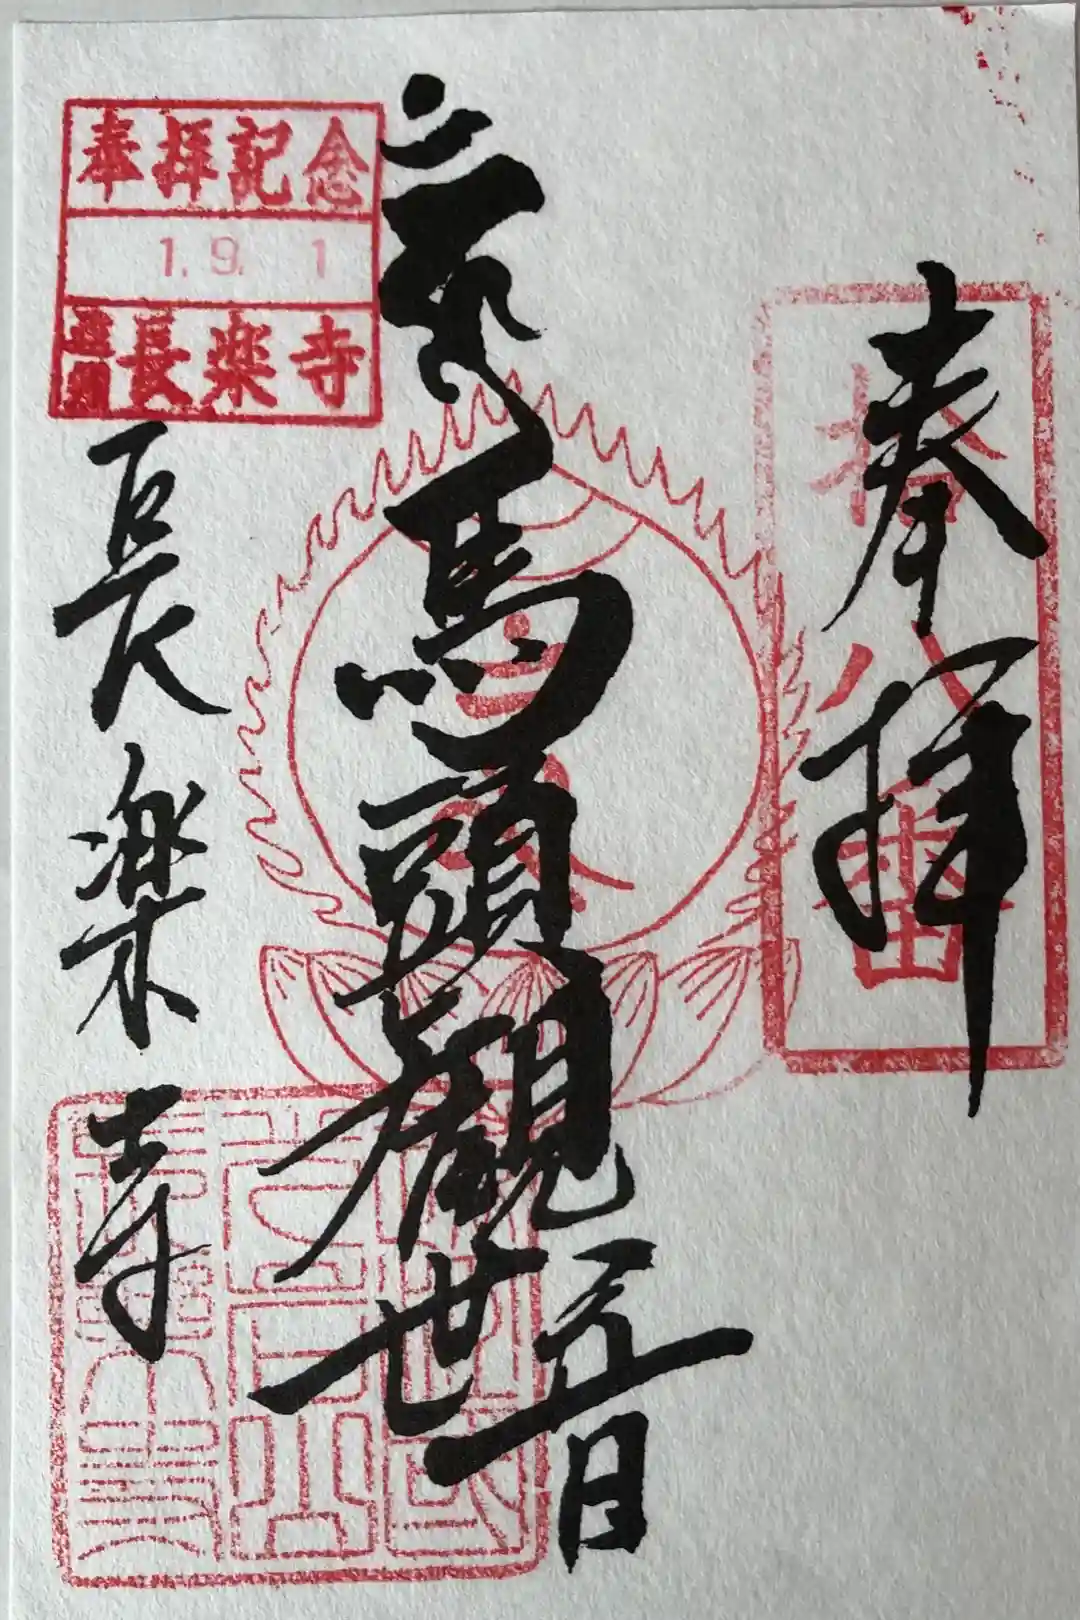 奉拝
拾八番
馬頭観世音
奉拝記念
1. 9. 1
長楽寺
長楽寺